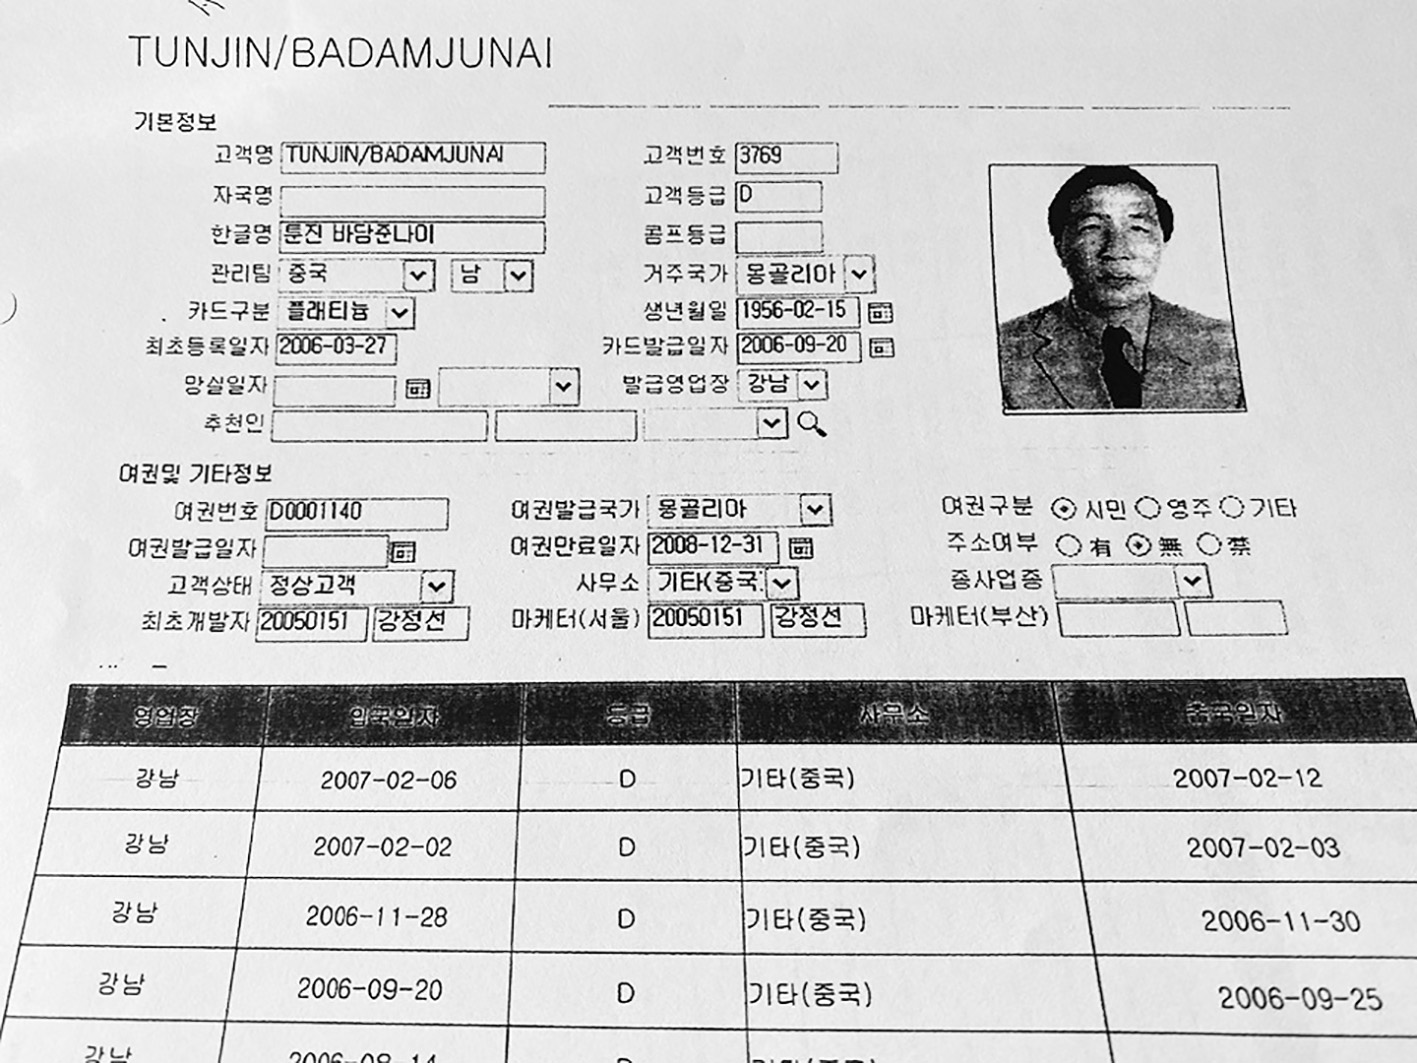 TUNJIN/BADAMJUNAI
기본정보
고객명 TUNJIN/BADAMJUNAI 고객번호 3769
자국명 고객등급 D
한글명 툰진 바담준나이 콤프등급
관리팀 중국 남 거주국가 몽골리아
카드구분 플래티늄 생년월일 1956-02-15
최초등록일자 2006-03-27 카드발급일자 2006-09-20
망실일자 발급영업장 강남
추천인
여권및 기타정보
여권번호 D0001140 여권발급국가 몽골리아 여권구분 시민 영주 기타
여권발급일자 여권만료일자 2008-12-31 주소여부 有 無 禁
고객상태 정상고객 사무소 기타(중국 종사업종
최초개발자 20050151 강정선 마케터(서울) 20050151 강정선 마케터(부산)
영업장 입국일자 등급 사무소 출국일자
강남 2007-02-06 D 기타(중국) 2007-02-12
강남 2007-02-02 D 기타(중국) 2007-02-03
강남 2006-11-28 D 기타(중국) 2006-11-30
강남 2006-09-20 D 기타(중국) 2006-09-25
강남 2006-08-14